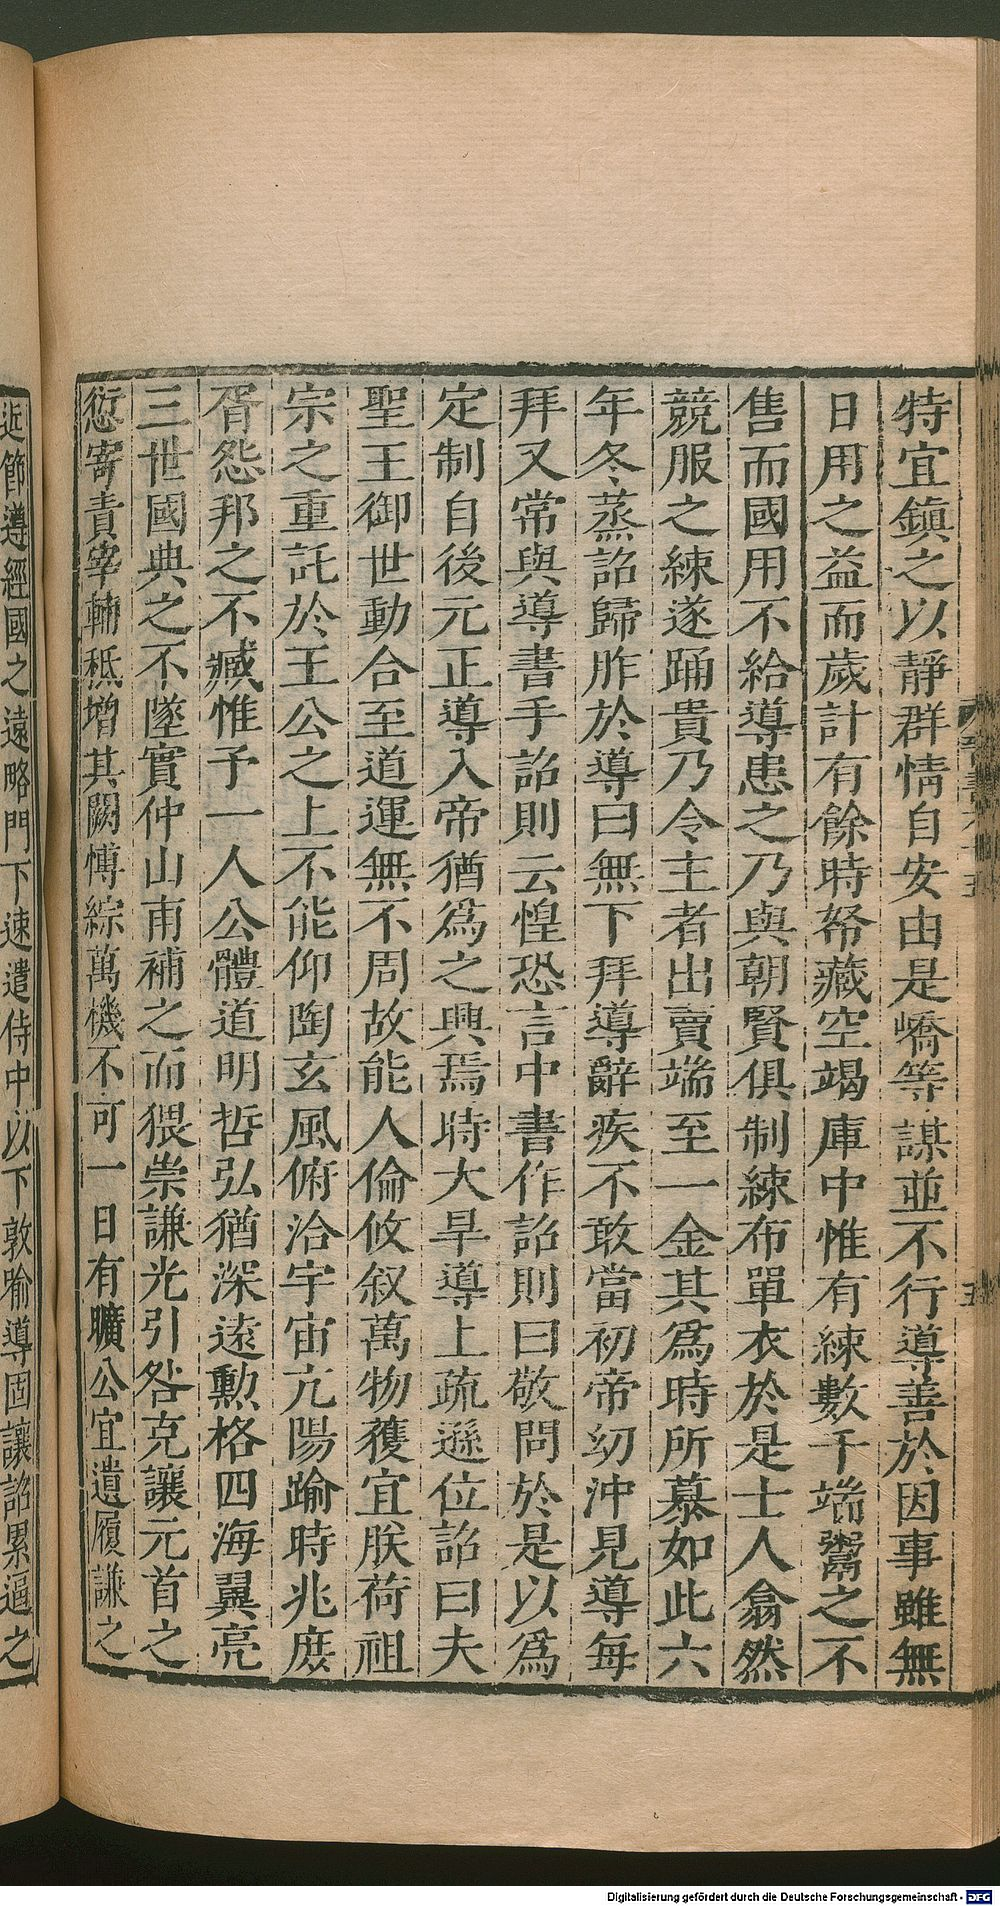 特宜鎮之以靜群情自安由是嶠等謀並不行導善於因事雖無
日用之益而歲計有餘時帑藏空竭庫中惟有練數千端鬻之不
售而國用不給導患之乃與朝賢俱制練布單衣於是士人翕然
競服之練遂踊貴乃令主者出賣端至一金其爲時所慕如此六
年冬蒸詔歸胙於導曰無下拜導辭疾不敢當初帝幼沖見導每
拜又常與導書手詔則云惶恐言中書作詔則曰敬問於是以爲
定制自後元正導入帝猶爲之興焉時大旱導上疏遜位詔曰夫
聖王御世動合至道運無不周故能人倫攸叙萬物獲宜朕荷祖
宗之重託於王公之上不能仰陶玄風俯洽宇宙亢陽踰時兆庶
胥怨邦之不臧惟予一人公體道明哲弘猶深遠勳格四海翼亮
三世國典之不墜實仲山甫補之而猥崇謙光引咎克讓元首之
愆寄責宰輔秪增其闕博綜萬機不可一日有曠公宜遺履謙之
近節遵經國之遠略門下速遣侍中以下敦喻導固讓詔累逼之
五
Digitalisierung gefördert durch die Deutsche Forschungsgemeinschaft - DFG